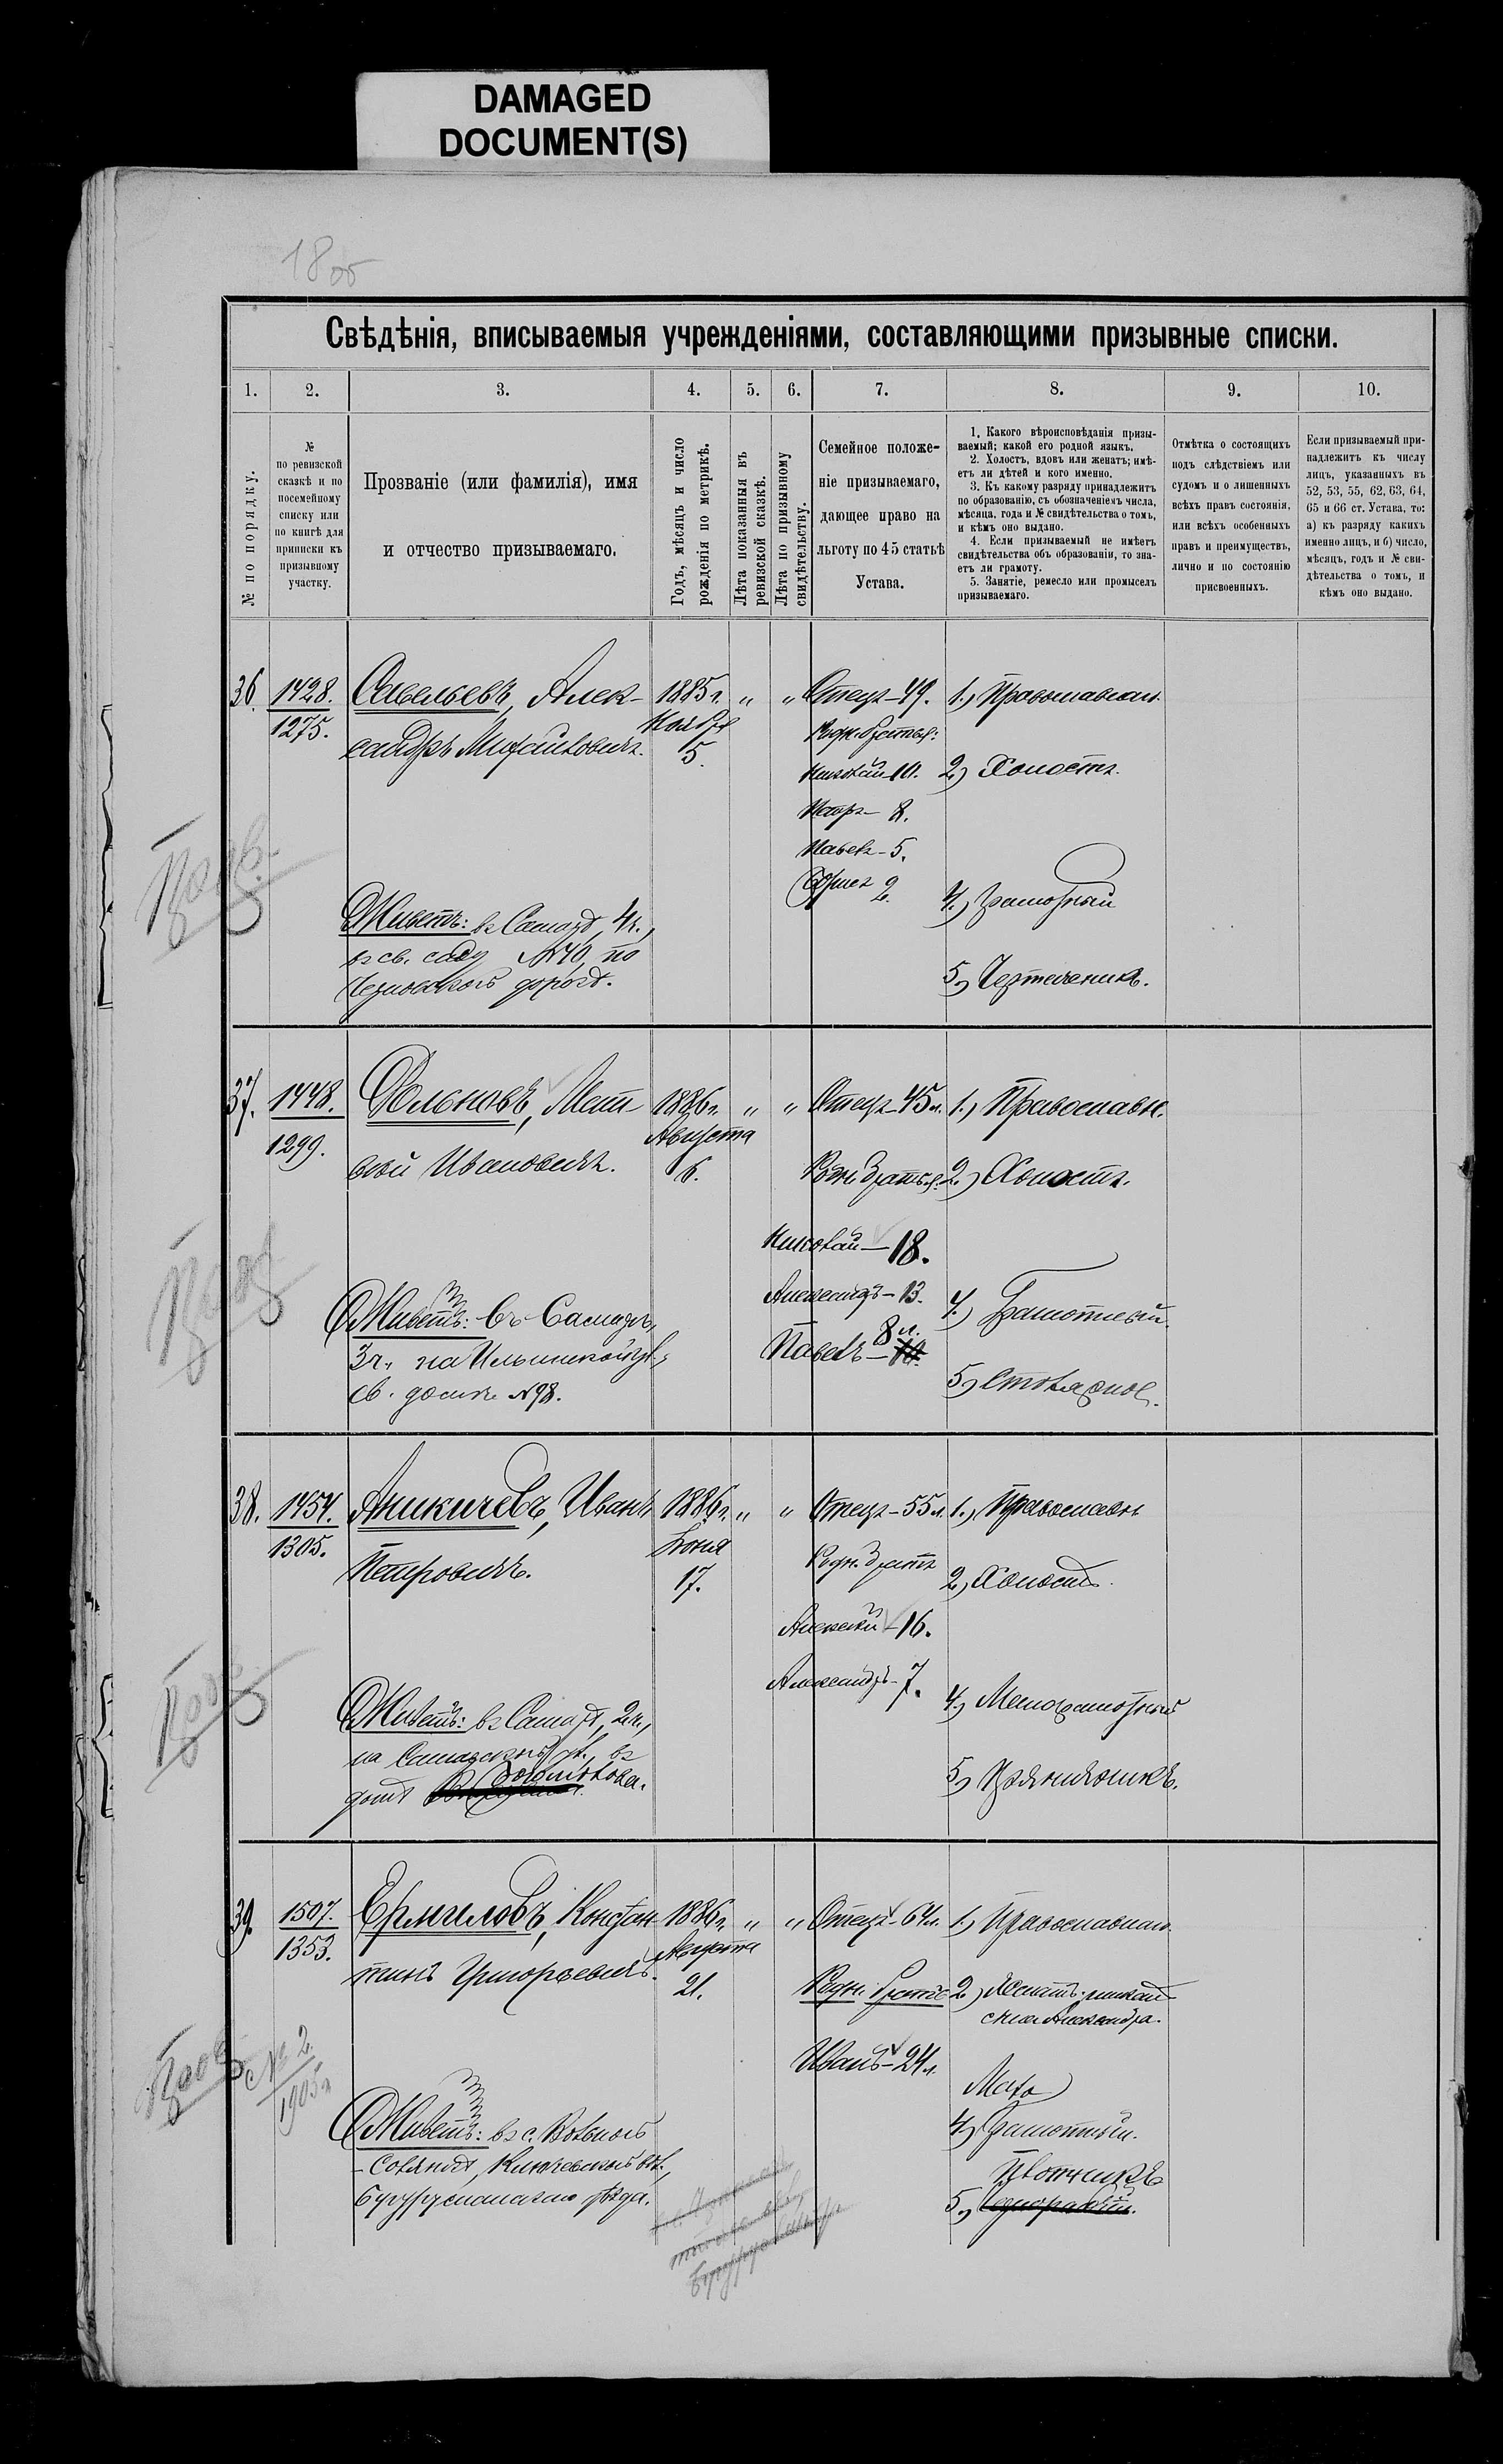 DAMAGED
DOCUMENT(S)
18об
Свѣдѣнія, вписываемыя учрежденіями, составляющими призывные списки.
1. 2. 3. 4. 5. 6. 7. 8. 9. 10.
№ по порядку.
№
по ревизской
сказкѣ и по
посемейному
списку или
по книгѣ для
приписки къ
призывному
участку.
Прозваніе (или фамилія), имя
и отчество призываемаго.
Годъ, мѣсяцъ и число
рожденія по метрикѣ.
Лѣта показанныя въ
ревизской сказкѣ.
Лѣта по призывному
свидѣтельству.
Семейное положе-
ніе призываемаго,
дающее право на
льготу по 45 статьѣ
Устава.
1. Какого вѣроисповѣданія призы-
ваемый; какой его родной языкъ.
2. Холостъ, вдовъ или женатъ; имѣ-
етъ ли дѣтей и кого именно.
3. Къ какому разряду принадлежитъ
по образованію, съ обозначеніемъ числа,
мѣсяца, года и № свидѣтельства о томъ,
и кѣмъ оно выдано.
4. Если призываемый не имѣетъ
свидѣтельства объ образованіи, то зна-
етъ ли грамоту.
5. Занятіе, ремесло или промыселъ
призываемаго.
Отмѣтка о состоящихъ
подъ слѣдствіемъ или
судомъ и о лишенныхъ
всѣхъ правъ состоянія,
или всѣхъ особенныхъ
правъ и преимуществъ,
лично и по состоянію
присвоенныхъ.
Если призываемый при-
надлежитъ къ числу
лицъ, указанныхъ въ
52, 53, 55, 62, 63, 64,
65 и 66 ст. Устава, то:
а) къ разряду какихъ
именно лицъ, и б) число,
мѣсяцъ, годъ и № сви-
дѣтельства о томъ, и
кѣмъ оно выдано.
36.
1428.
1275.
Савельевъ, Алек-
сандръ Михайловичъ.
1885 г.
Ноября
5.
" "
Отецъ-49.
Родн. братья:
Николай-10.
Петръ- 8.
Павелъ-5.
2.
1.) Православн.
2.) Холостъ.
4.) Грамотный
5.) Чертежникъ.
Живетъ: въ Самарѣ, 4 ч.,
въ св. саду №40, по
дорогѣ.
37.
1448.
1299.
Мат-
вѣй Ивановичъ.
1886 г.
Августа
6.
" "
Отецъ-45 л.
Родн. братья:
Николай-18.
Александръ-13.
8 л.
Павелъ-
1.) Православн.
2.) Холостъ.
4.) Грамотный.
5.) Столярное.
Живетъ: въ Самарѣ,
3 ч. на Ильинской ул.,
св. домѣ №98.
38.
1454.
1305.
Аникичевъ, Иванъ
Петровичъ.
1886 г.
Іюня
17.
" "
Отецъ-55 л.
Родн. братъ
Алексѣй-16.
Александръ-7.
1.) Православн
2.) Холостъ.
4.) Малограмотный
5.) Пряничникъ.
Живетъ: въ Самарѣ, 2 ч.,
на Самарской ул., въ
домѣ
39.
1507.
1353.
Ермиловъ, Констан-
тинъ Григорьевичъ.
1886 г.
Августа
21.
" "
Отецъ-64 л.
Родн. братъ
Иванъ-24 л.
1.) Православн.
2.) Женатъ. имѣетъ
сына Александра.
Мало
4.) грамотный.
Плотникъ
5.) Чернорабочій.
№2
1905 г
Живетъ: въ с.
Солянкѣ, Ключевской вол.,
Бугурусланскаго уѣзда.